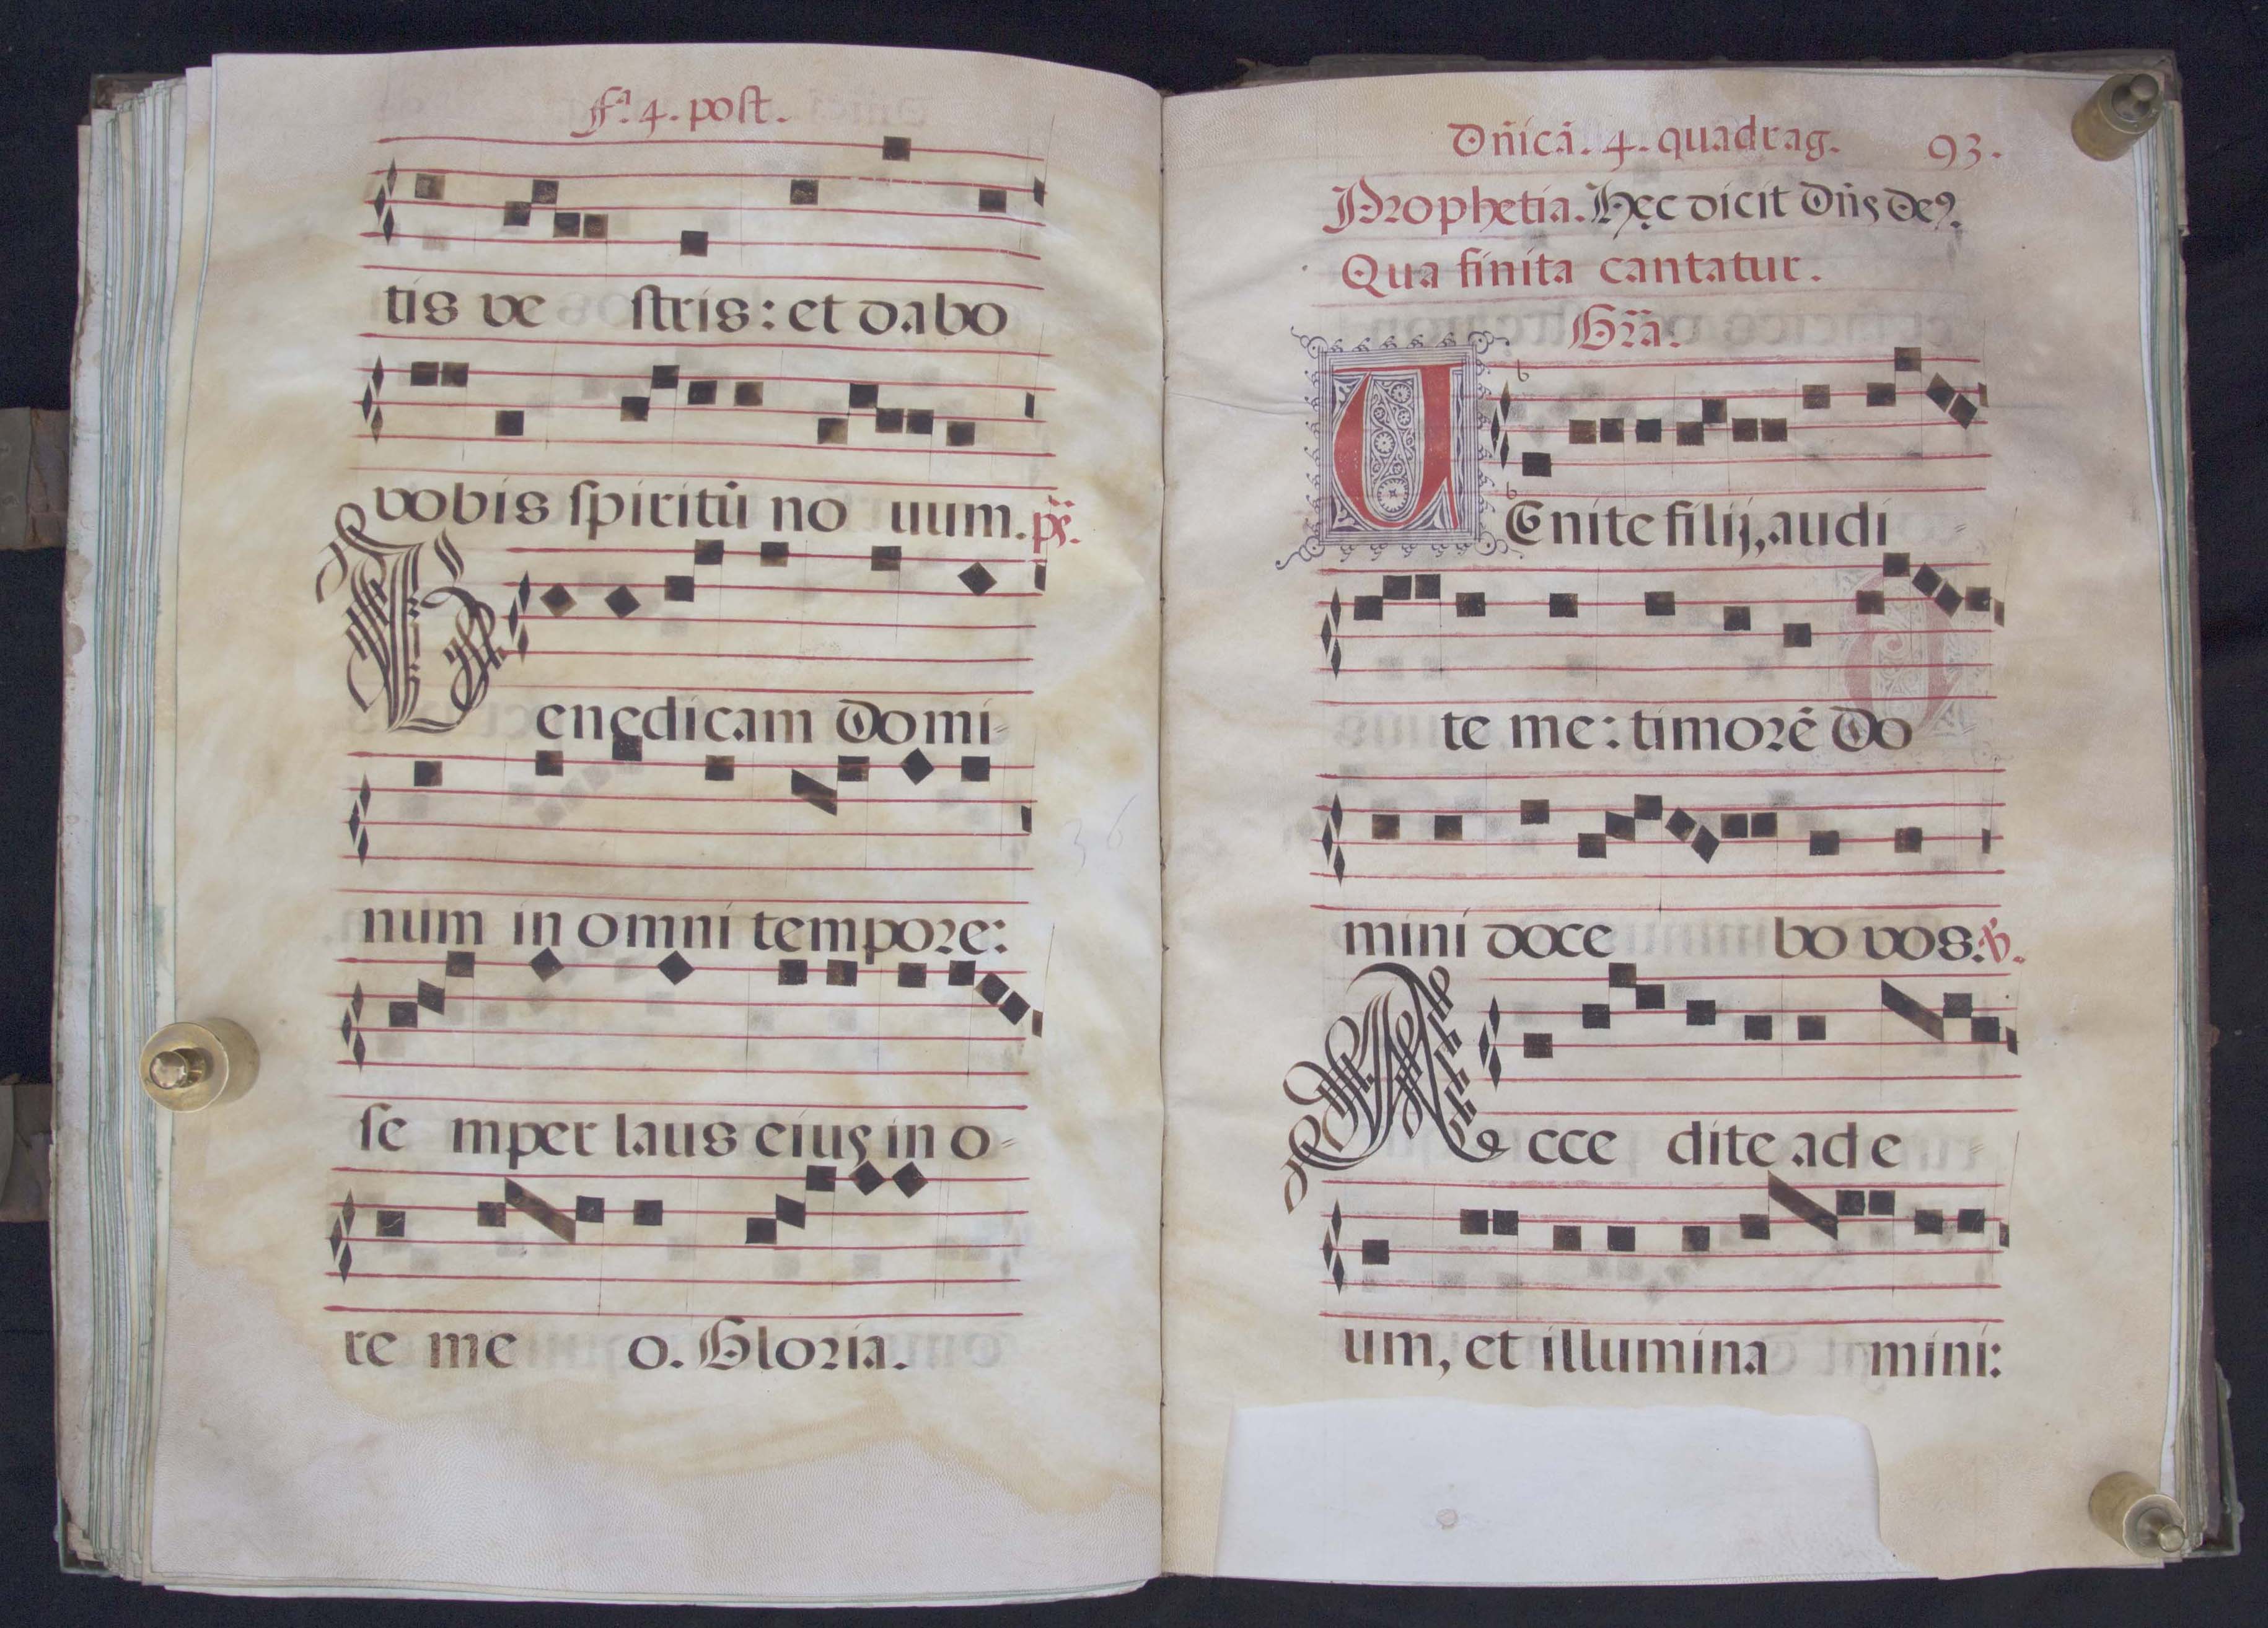 fᵃ. 4. post.
tis ve stris: et dabo
vobis spiritū no uum. ps̄.
Benedicam Domi-
num in omni tempore:
se mper laus eius in o-
re me o. Gloria.
Dñicā. 4. quadrag. 93.
Prophetia. Hęc dicit Dñs Deꝰ.
Qua finita cantatur.
Gr̄a.
VEnite filij, audi-
te me: timorē Do
mini doce bo vos. ℣.
Acce dite ad e-
um, et illumina mini:
36